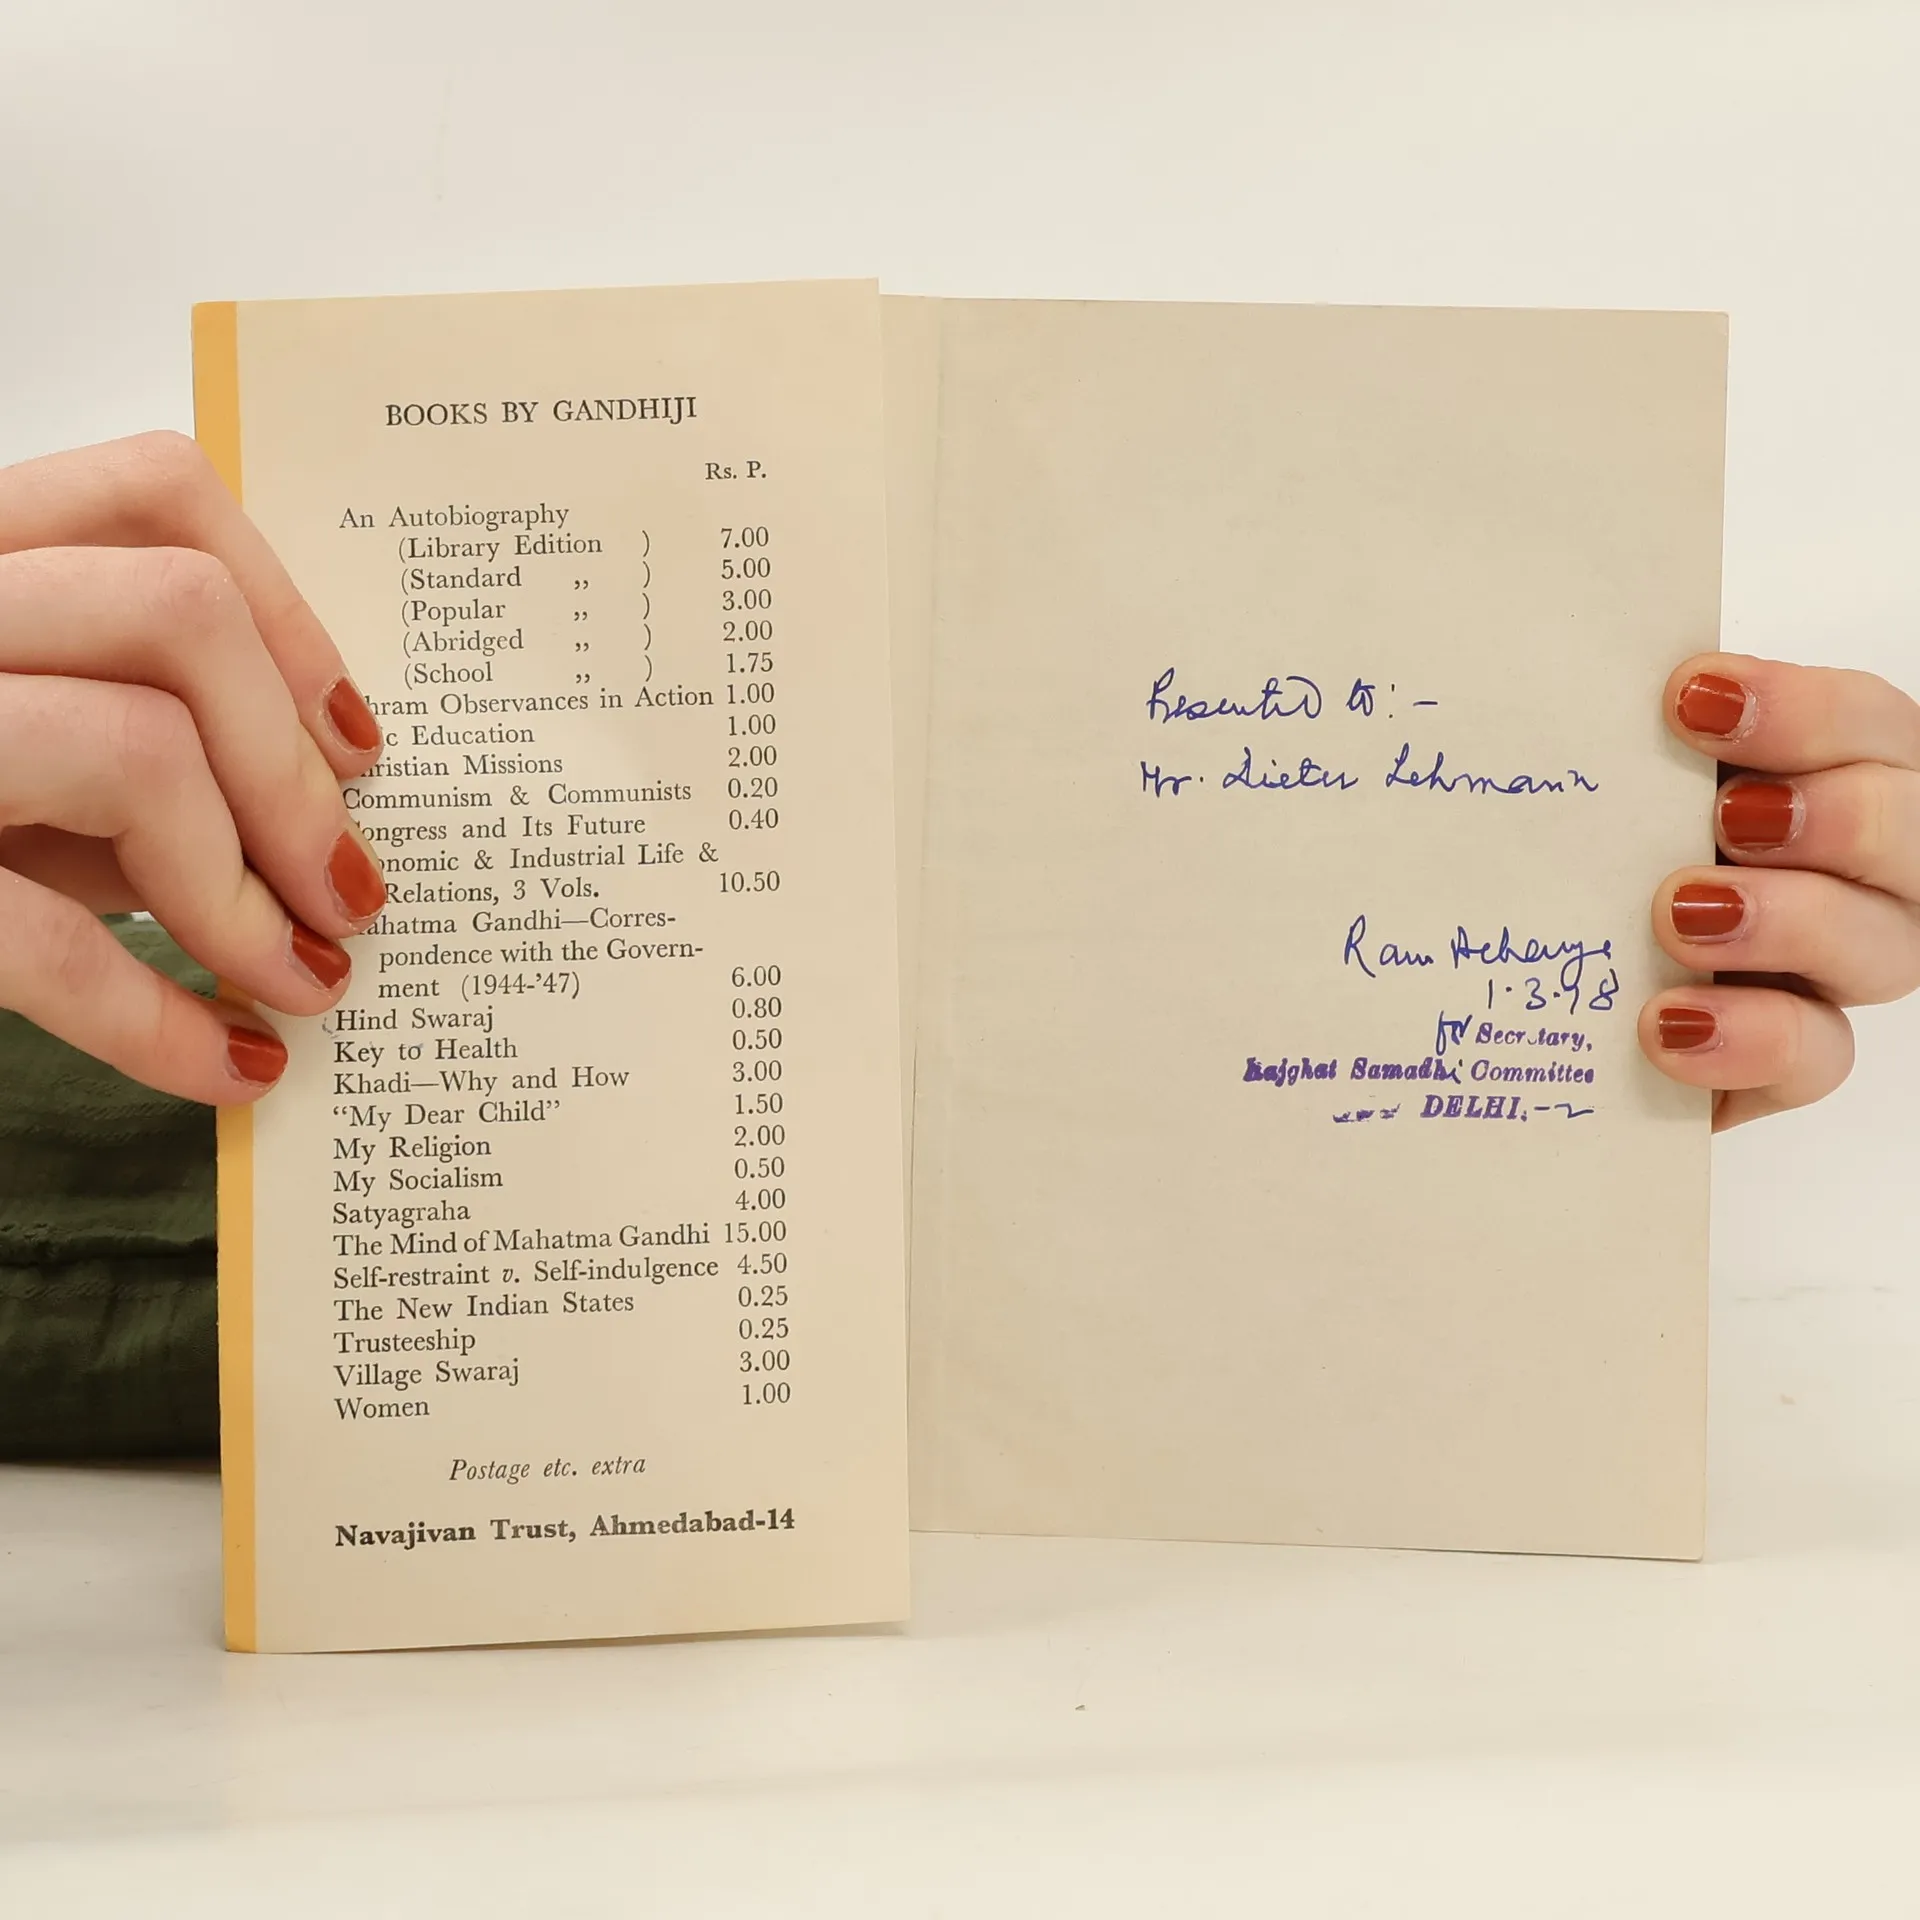 BOOKS BY GANDHIJI
Rs. P.
An Autobiography
(Library Edition ) 7.00
(Standard ,, ) 5.00
(Popular ,, ) 3.00
(Abridged ,, ) 2.00
(School ,, ) 1.75
hram Observances in Action 1.00
ic Education 1.00
ristian Missions 2.00
Communism & Communists 0.20
ongress and Its Future 0.40
onomic & Industrial Life &
Relations, 3 Vols. 10.50
ahatma Gandhi—Corres-
pondence with the Govern-
ment (1944-'47) 6.00
Hind Swaraj 0.80
Key to Health 0.50
Khadi—Why and How 3.00
“My Dear Child” 1.50
My Religion 2.00
My Socialism 0.50
Satyagraha 4.00
The Mind of Mahatma Gandhi 15.00
Self-restraint v. Self-indulgence 4.50
The New Indian States 0.25
Trusteeship 0.25
Village Swaraj 3.00
Women 1.00
Postage etc. extra
Navajivan Trust, Ahmedabad-14
Presented to:-
Mr. Dieter Lehmann
Ram Acharya
1.3.78
for Secretary,
Rajghat Samadhi Committee
DELHI.-2